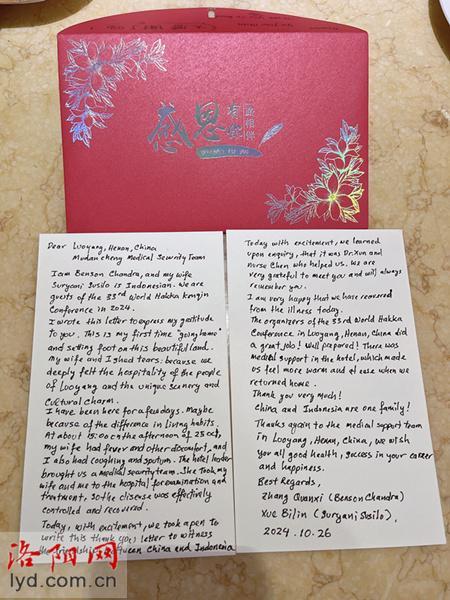 感恩
有你
一路相伴
Dear Luoyang, Henan, China
Mudan cheng Medical Sewrity Team
I am Benson Chandra, and my wife
Suryani Susilo is Indonesian. We are
guests of the 33rd World Hakka kengin
Conference in 2024.
I wrote this letter to express my gratitude
to you. This is my first time "going home"
and setting foot on this beautiful land.
My wife and I shed tears: because we
deeply felt the hospitality of the people
of Luoyang and the unique scenery and
cultural charm.
I have been here for a few days. Maybe
because of the difference in living habits.
At about 15:00 on the afternoon of 25 oct,
my wife had fever and other discomfort, and
I also had coughing and sputum. The hotel leader
brought us a medical security team. She Took my
wife and me to the hospital for examination and
treatment, so the disease was effectively
controlled and recovered.
Today, with excitement, we took a pen to
write this thank you letter to witness
the friendship between China and Indonesia
Today with excitement, we learned
upon enquiry, that it was Dr. Xun and
nurse Chen who helped us. We are
very grateful to meet you and will always
remember you.
I am very happy that we have recovered
from the illness today.
The organizers of the 33rd World Hakka
Conference in Luoyang, Henan, China did
a great job! Well prepared! There was
medical support in the hotel, which made
us feel more warm and at ease when we
returned home.
Thank you very much!
China and Indonesia are one family!
Thanks again to the medical support team
in Luoyang, Henan, China, we wish
you all good health, success in your career
and happiness.
Best Regards,
Zhang Guanxi (Benson Chandra)
Xue Bilin (Suryani Susilo),
2024.10.26
洛阳网
lyd.com.cn